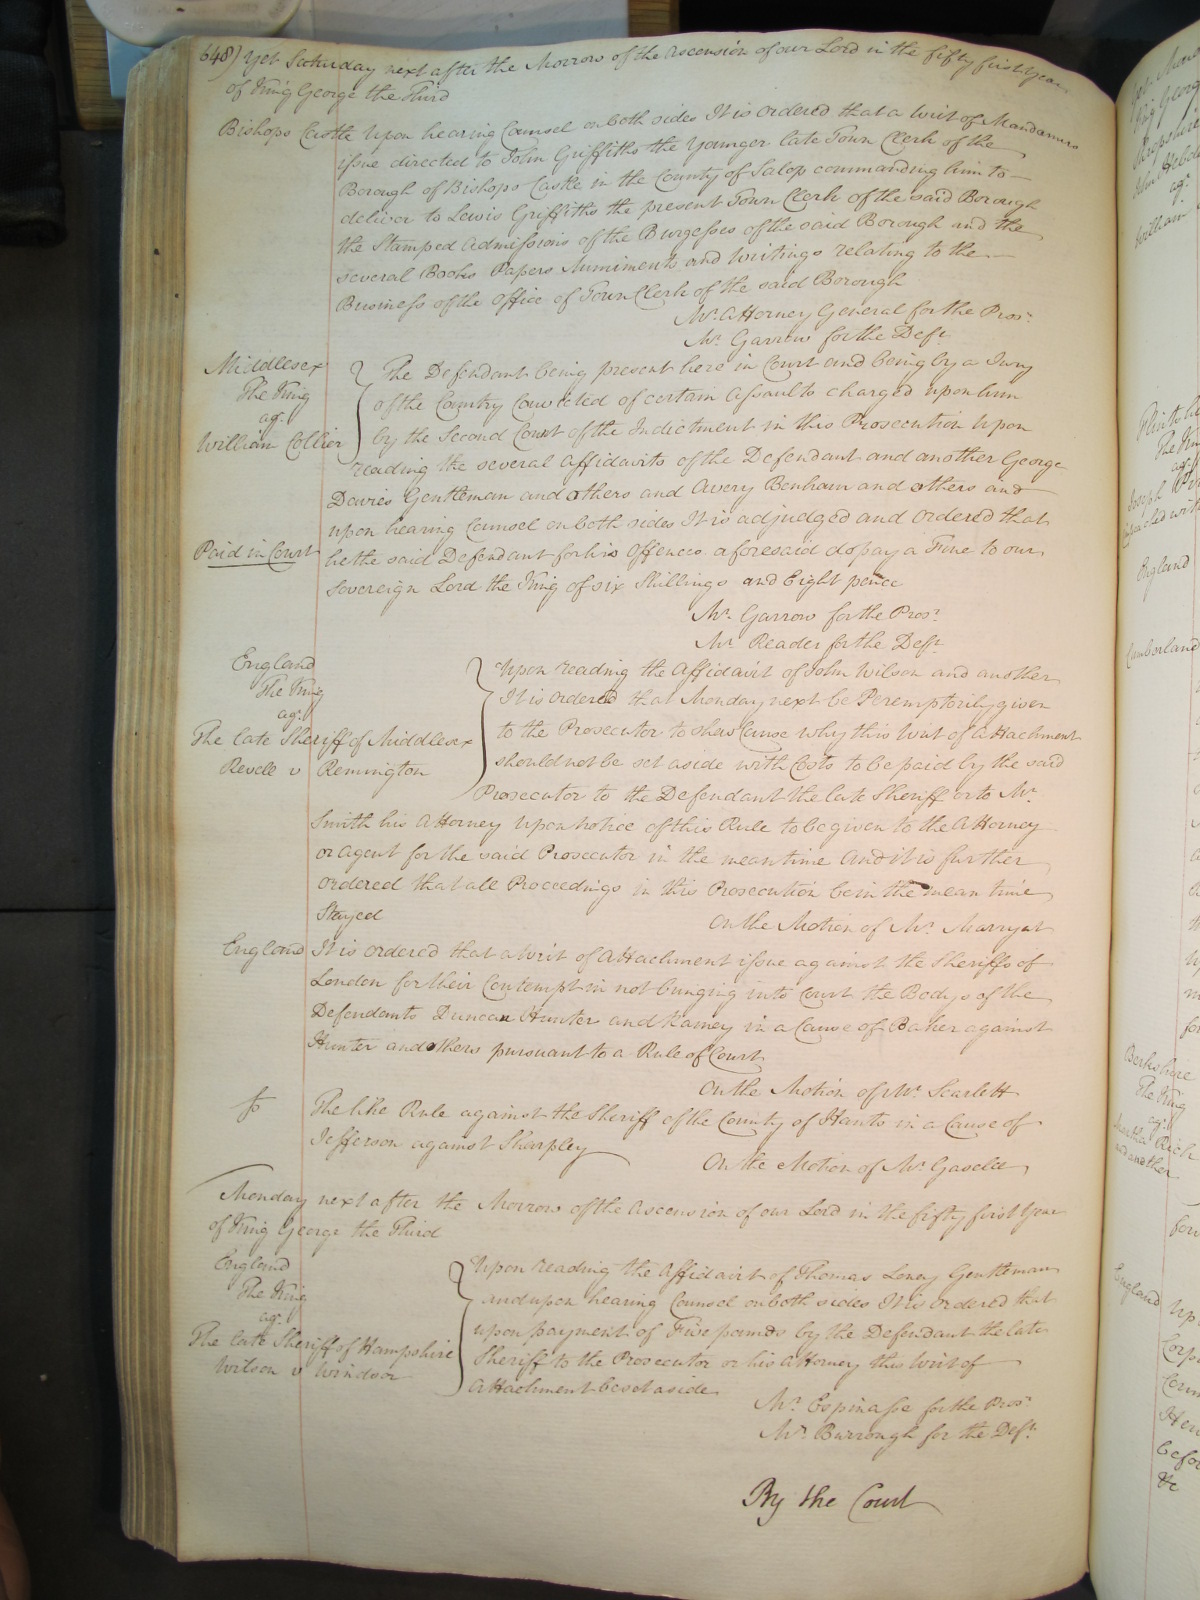 648) Yet Saturday next after the Morrow of the Ascension of our Lord in the fifty first Year
of King George the Third
Bishops Castle Upon hearing Counsel on both sides It is ordered that a Writ of Mandamus
issue directed to John Griffiths the Younger late Town Clerk of the
Borough of Bishops Castle in the County of Salop commanding him to
deliver to Lewis Griffiths the present Town Clerk of the said Borough
the Stamped Admissions of the Burgesses of the said Borough and the
several Books Papers Muniments and Writings relating to the
Business of the Office of Town Clerk of the said Borough
Mr. Attorney General for the Prosr.
Mr. Garrow for the Deft.
Middlesex
The King
agt.
William Collier
The Defendant being present here in Court and being by a Jury
of the Country Convicted of certain Assaults charged upon him
by the Second Count of the Indictment in this Prosecution Upon
reading the several Affidavits of the Defendant and another George
Davies Gentleman and others and Avery Benham and others and
upon hearing Counsel on both sides It is adjudged and Ordered that
Paid in Court
he the said Defendant for his Offences aforesaid do pay a Fine to our
Sovereign Lord the King of six Shillings and Eight pence
Mr. Garrow for the Prosr.
Mr. Reader for the Deft.
England
The King
agt.
The late Sheriff of Middlesex
Revele v Remington
Upon reading the Affidavit of John Wilson and another
It is ordered that Monday next be Peremptorily given
to the Prosecutor to shew Cause why this Writ of Attachment
should not be set aside with Costs to be paid by the said
Prosecutor to the Defendant the late Sheriff or to Mr.
Smith his Attorney Upon notice of this Rule to be given to the Attorney
or Agent for the said Prosecutor in the mean time And it is further
Ordered that all Proceedings in this Prosecution be in the mean time
Stayed
On the Motion of Mr. Marryat
England It is ordered that a Writ of Attachment issue against the Sheriffs of
London for their Contempt in not bringing into Court the Bodys of the
Defendants Duncan Hunter and Ramey in a Cause of Baker against
Hunter and others pursuant to a Rule of Court
On the Motion of Mr. Scarlett
The like Rule against the Sheriff of the County of Hants in a Cause of
Jefferson against Sharpley
On the Motion of Mr. Gaselee
Monday next after the Morrow of the Ascension of our Lord in the fifty first Year
of King George the Third
England
The King
agt.
The late Sheriff of Hampshire
Wilson v Windsor
Upon reading the Affidavit of Thomas Loney Gentleman
and upon hearing Counsel on both sides It is Ordered that
upon payment of Five pounds by the Defendant the late
Sheriff to the Prosecutor or his Attorney this Writ of
Attachment be set aside
Mr. Espinasse for the Prosr.
Mr. Burrough for the Deft.
By the Court